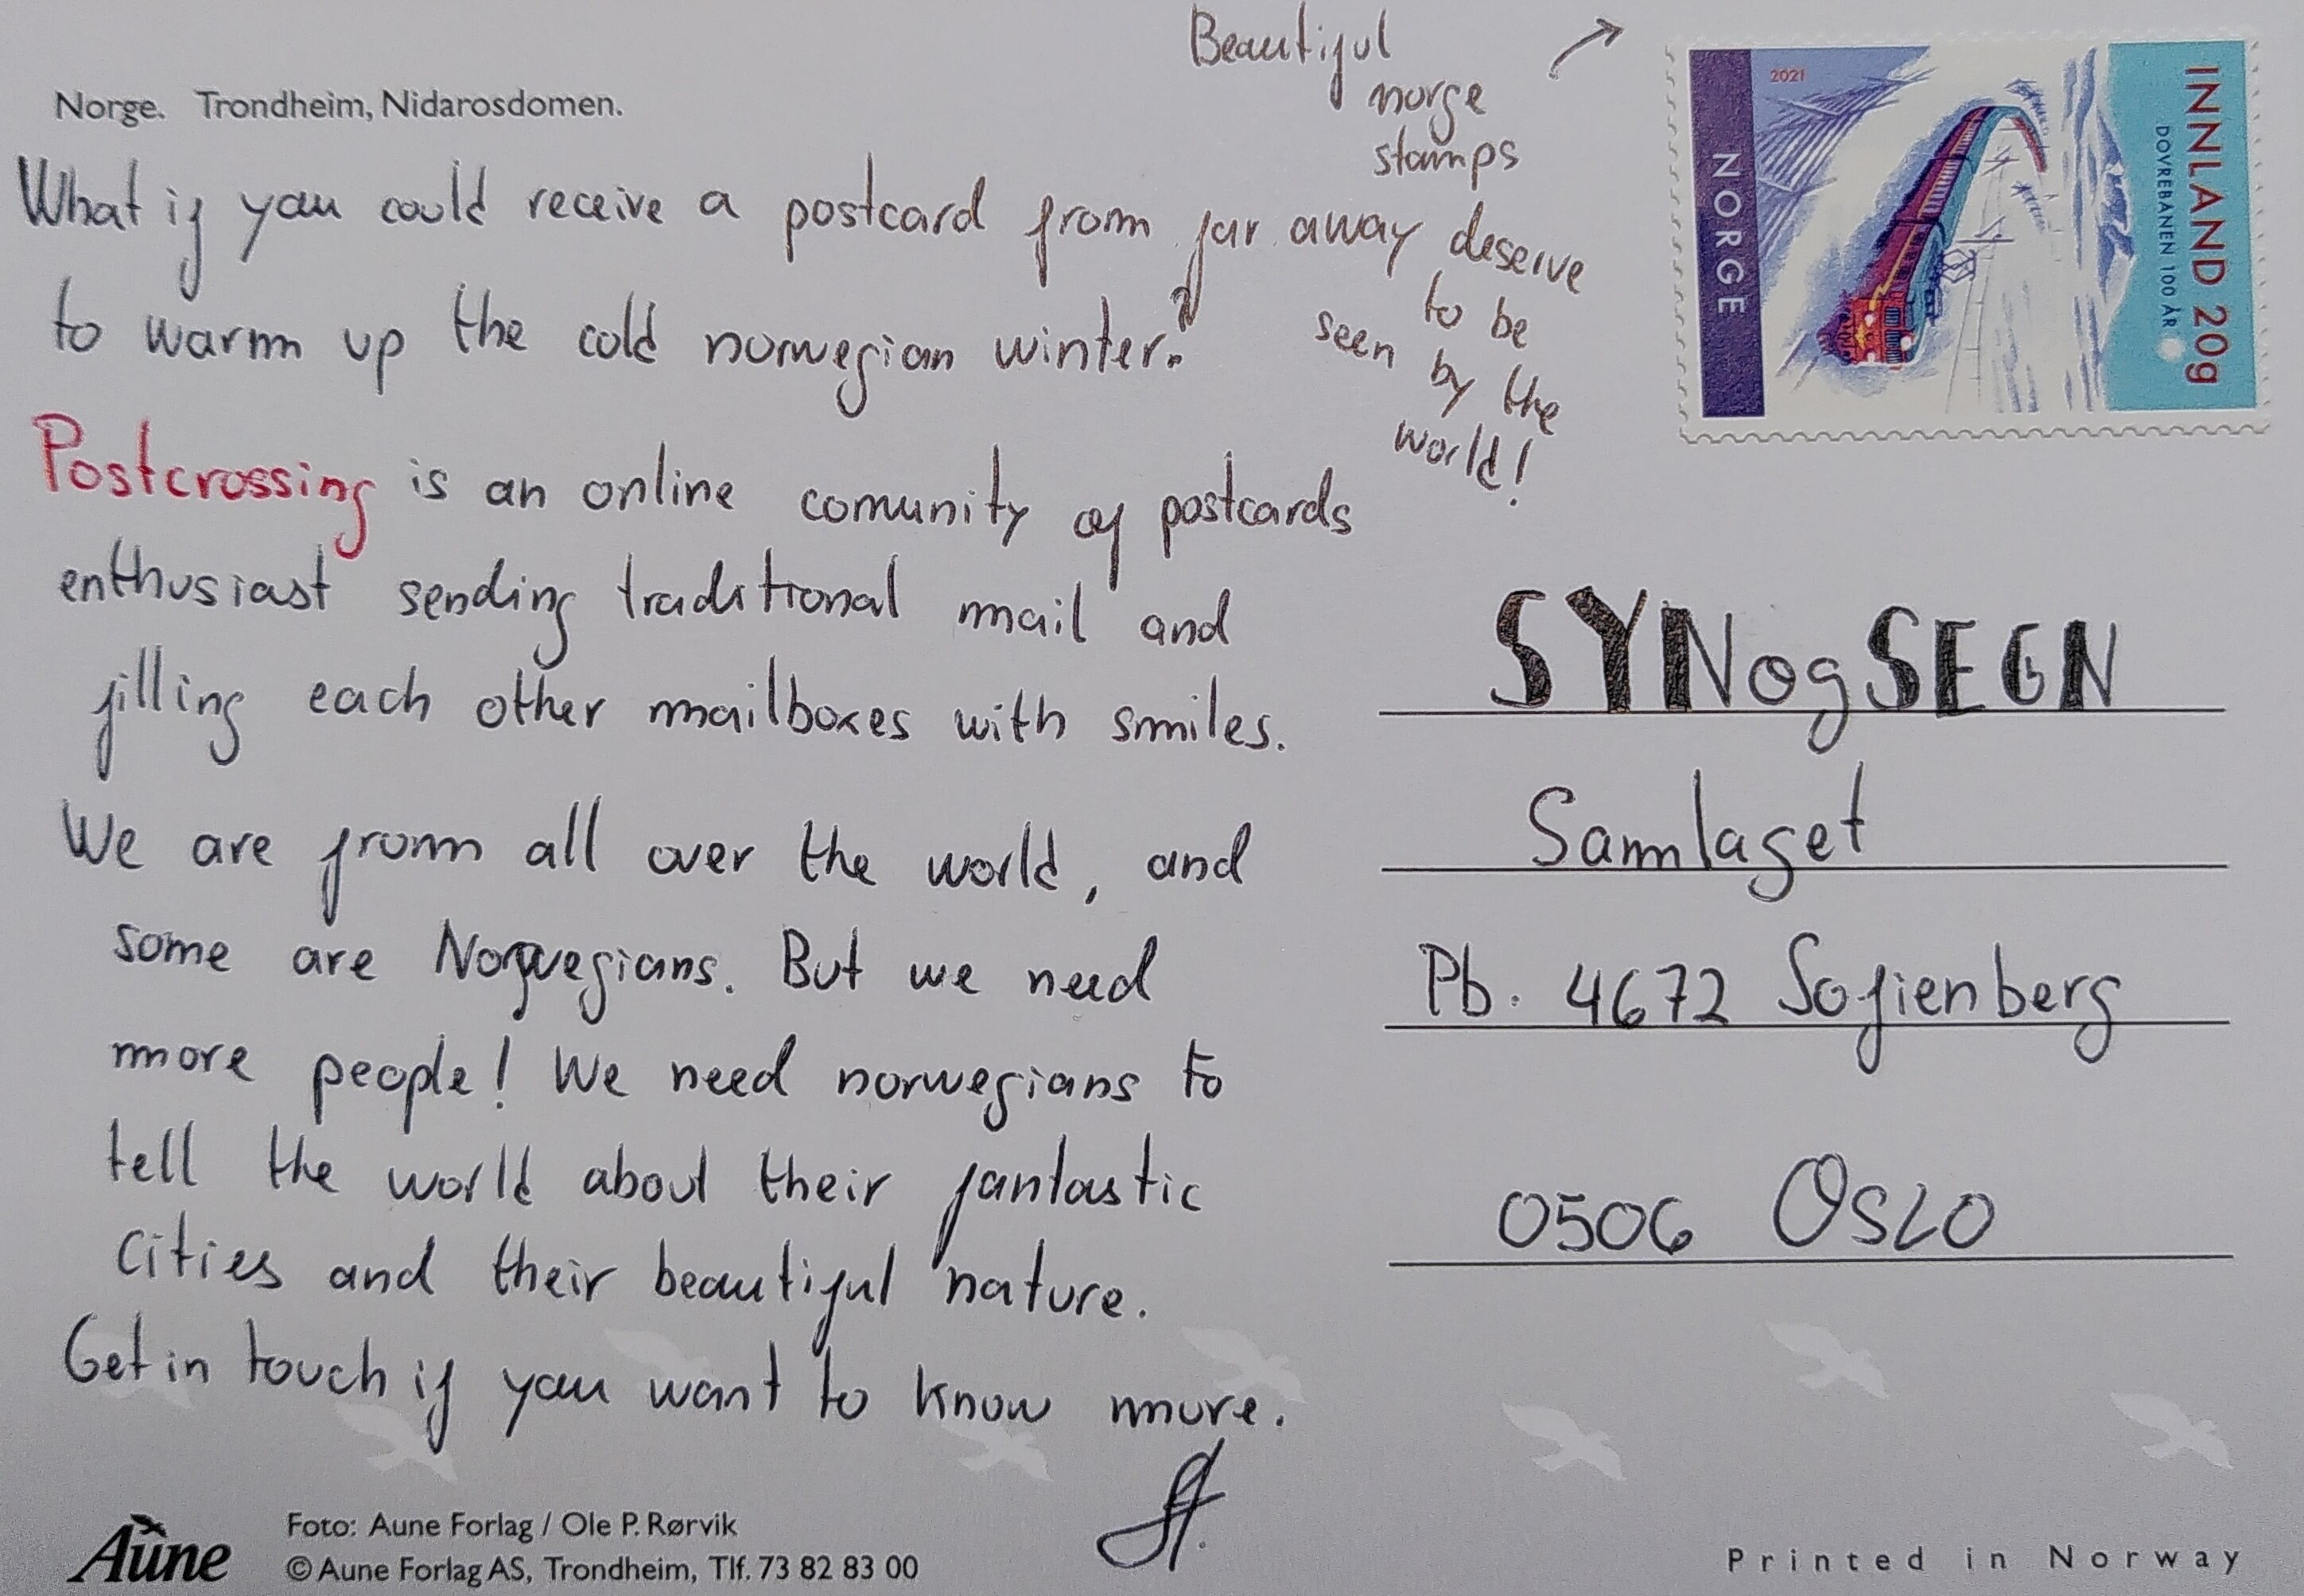 Norge. Trondheim, Nidarosdomen.
What if you could receive a postcard from far away
to warm up the cold norwegian winter?
Postcrossing is an online comunity of postcards
enthusiast sending traditional mail and
filling each other mailboxes with smiles.
We are from all over the world, and
some are Norwegians. But we need
more people! We need norwegians to
tell the world about their fantastic
cities and their beautiful nature.
Get in touch if you want to know more.
Beautiful
norge
stamps
deserve
to be
seen by the
world!
NORGE
2021
INNLAND 20g
DOVREBANEN 100 ÅR
SYN og SEGN
Samlaget
Pb. 4672 Sofienberg
0506 OSLO
Aune
Foto: Aune Forlag / Ole P. Rørvik
© Aune Forlag AS, Trondheim, Tlf. 73 82 83 00
Printed in Norway